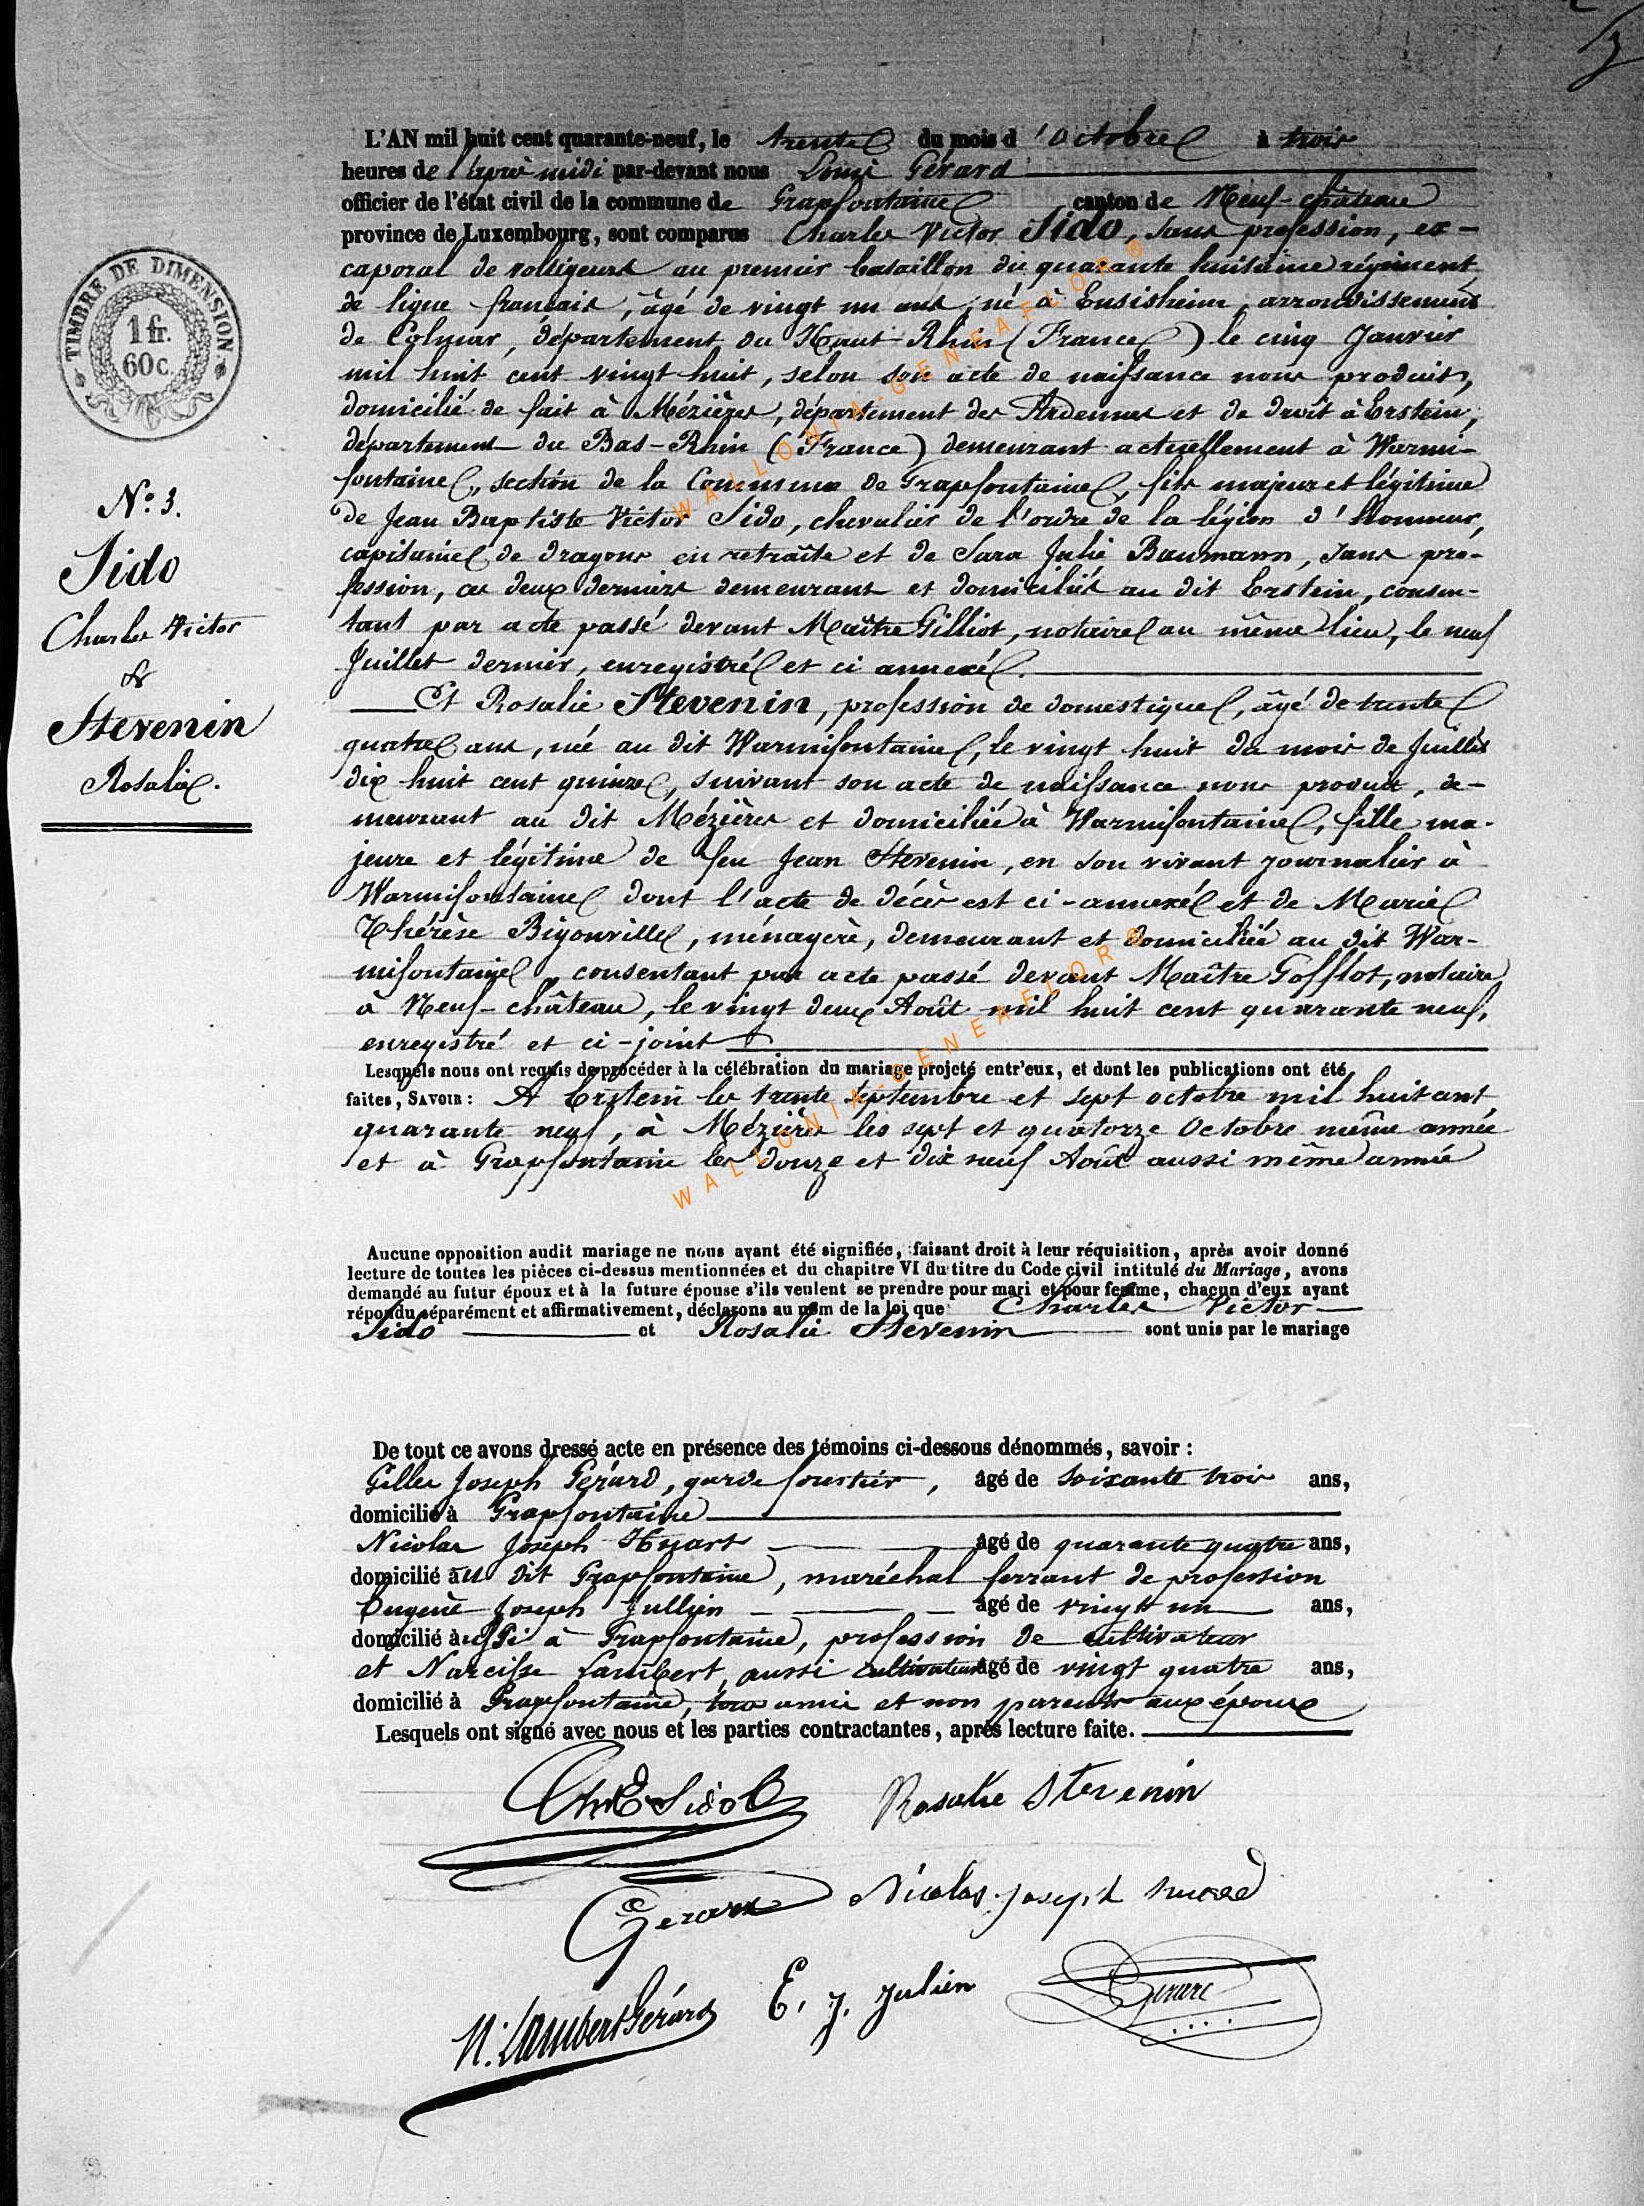 L'AN mil huit cent quarante-neuf, le trente du mois d'Octobre à trois
heures de l'après midi par-devant nous Louis Gérard
officier de l'état civil de la commune de Grapfontaine canton de Neuf-château
province de Luxembourg, sont comparus Charles Victor Sido, sans profession, ex-
caporal de voltigeurs au premier bataillon du quarante huitième régiment
de ligne français, âgé de vingt un ans, né à Ensisheim, arrondissement
de Colmar, département du Haut-Rhin (France) le cinq Janvier
mil huit cent vingt huit, selon son acte de naissance nous produit,
domicilié de fait à Mézières, département des Ardennes et de droit à Erstein,
département du Bas-Rhin (France) demeurant actuellement à Warmi-
fontaine, section de la Commune de Grapfontaine, fils majeur et légitime
de Jean Baptiste Victor Sido, chevalier de l'ordre de la légion d'honneur,
capitaine de dragons en retraite et de Sara Julie Baumann, sans pro-
fession, ces deux derniers demeurant et domiciliés au dit Erstein, consen-
tant par acte passé devant Maître Gilliot, notaire au même lieu, le neuf
Juillet dernier, enregistré et ci annexé.
Et Rosalie Stevenin, profession de domestique, âgé de trente
quatre ans, née au dit Warmifontaine, le vingt huit du mois de Juillet
dix huit cent quinze, suivant son acte de naissance nous produit, de-
meurant au dit Mézières et domiciliée à Warmifontaine, fille ma-
jeure et légitime de feu Jean Stevenin, en son vivant journalier à
Warmifontaine dont l'acte de décès est ci-annexé et de Marie
Thérèse Bigonville, ménagère, demeurant et domiciliée au dit War-
mifontaine, consentant par acte passé devant Maître Gofflot, notaire
à Neuf-château, le vingt deux Août mil huit cent quarante neuf,
enregistré et ci-joint
Lesquels nous ont requis de procéder à la célébration du mariage projeté entr'eux, et dont les publications ont été
faites, SAVOIR: A Erstein les trente Septembre et sept octobre mil huit cent
quarante neuf, à Mézières les sept et quatorze Octobre même année
et à Grapfontaine les douze et dix neuf Août aussi même année
Aucune opposition audit mariage ne nous ayant été signifiée, faisant droit à leur réquisition, après avoir donné
lecture de toutes les pièces ci-dessus mentionnées et du chapitre VI du titre du Code civil intitulé du Mariage, avons
demandé au futur époux et à la future épouse s'ils veulent se prendre pour mari et pour femme, chacun d'eux ayant
répondu séparément et affirmativement, déclarons au nom de la loi que Charles Victor
Sido et Rosalie Stevenin sont unis par le mariage
De tout ce avons dressé acte en présence des témoins ci-dessous dénommés, savoir :
Gilles Joseph Gérard, garde forestier, âgé de soixante trois ans,
domicilié à Grapfontaine
Nicolas Joseph Huart âgé de quarante quatre ans,
domicilié au dit Grapfontaine, maréchal ferrant de profession
Eugène Joseph Jullien âgé de vingt un ans,
domicilié aussi à Grapfontaine, profession de cultivateur
et Narcisse Lambert, aussi cultivateur âgé de vingt quatre ans,
domicilié à Grapfontaine, tous amis et non parents aux époux
Lesquels ont signé avec nous et les parties contractantes, après lecture faite.
TIMBRE DE DIMENSION.
1 fr.
60 c.
N° 3.
Sido
Charles Victor
&
Stevenin
Rosalie.
Sido
Rosalie Stevenin
Gerard
Nicolas Joseph
N. Lambert Gérard
E. J. Julien
Gerard
WALLONIA-GENEAFLOR®
WALLONIA-GENEAFLOR®